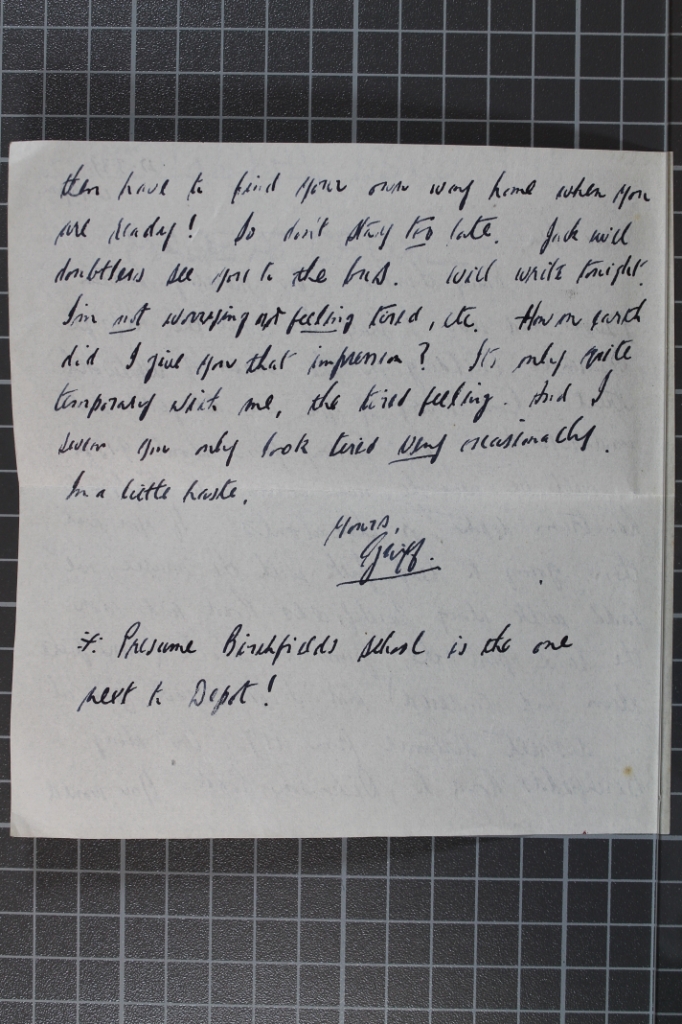 then have to find your own way home when you
are ready! So don't stay too late. Jack will
doubtless see you to the bus. Will write tonight.
I'm not worrying feeling tired, etc. How on earth
did I give you that impression? It's only quite
temporary with me, the tired feeling. And I
swear you only look tired very occasionally.
In a little haste,
Yours,
Geoff.
* Presume Birchfields School is the one
next to Depot!